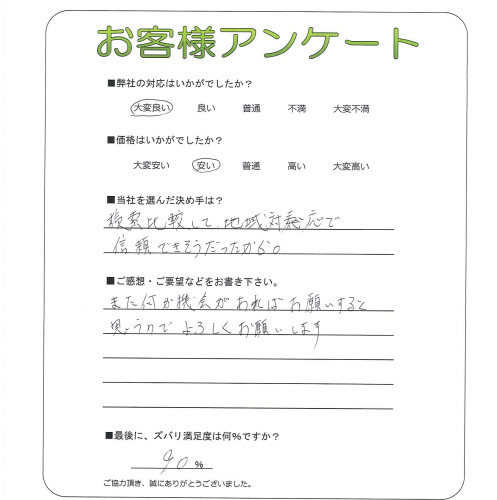 お客様アンケート
■弊社の対応はいかがでしたか？
大変良い 良い 普通 不満 大変不満
■価格はいかがでしたか？
大変安い 安い 普通 高い 大変高い
■当社を選んだ決め手は？
検索比較して、地域対応で
信頼できそうだったから。
■ご感想・ご要望などをお書き下さい。
また何か機会があればお願いすると
思うのでよろしくお願いします
■最後に、ズバリ満足度は何%ですか？
90 %
ご協力頂き、誠にありがとうございました。